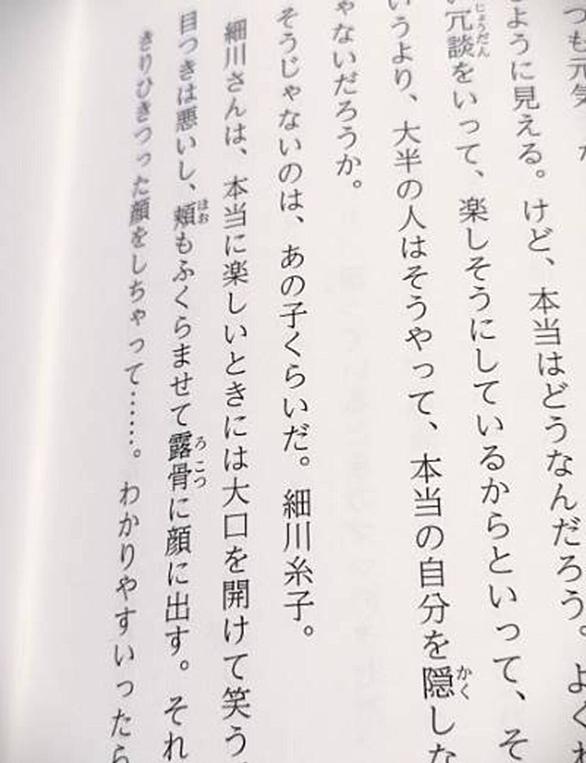 つも元気
ように見える。けど、本当はどうなんだろう。よく
冗談をいって、楽しそうにしているからといって、そ
いうより、大半の人はそうやって、本当の自分を隠しな
ゃないだろうか。
そうじゃないのは、あの子くらいだ。細川糸子。
細川さんは、本当に楽しいときには大口を開けて笑う
目つきは悪いし、頬もふくらませて露骨に顔に出す。それ
きりひきつった顔をしちゃって……。わかりやすいったら